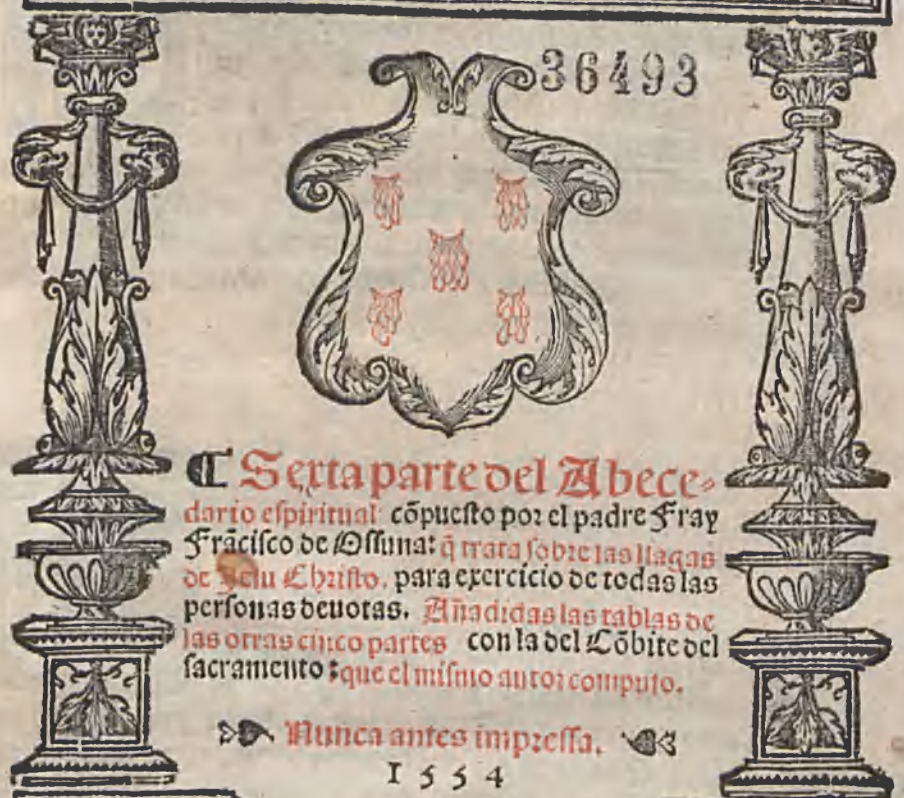 36493
¶ Sexta parte del Abece-
dario espiritual cõpuesto por el padre Fray
Frãcisco de Ossuna: q̃ trata sobre las llagas
de Jesu Christo. para exercicio de todas las
personas deuotas. Añadidas las tablas de
las otras cinco partes con la del Cõbite del
sacramento: que el mismo autor compuso.
Nunca antes impressa.
1554